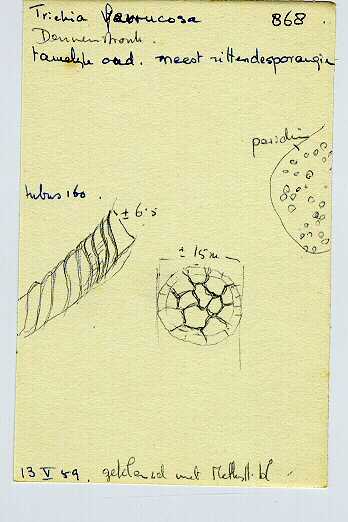 Trichia verrucosa 868
Dennenstronk.
tamelijk oud. meest zittende sporangia
peridie
tubus 160.
± 6.5
± 15 m
13 V 89. gekleurd met Methyl. bl